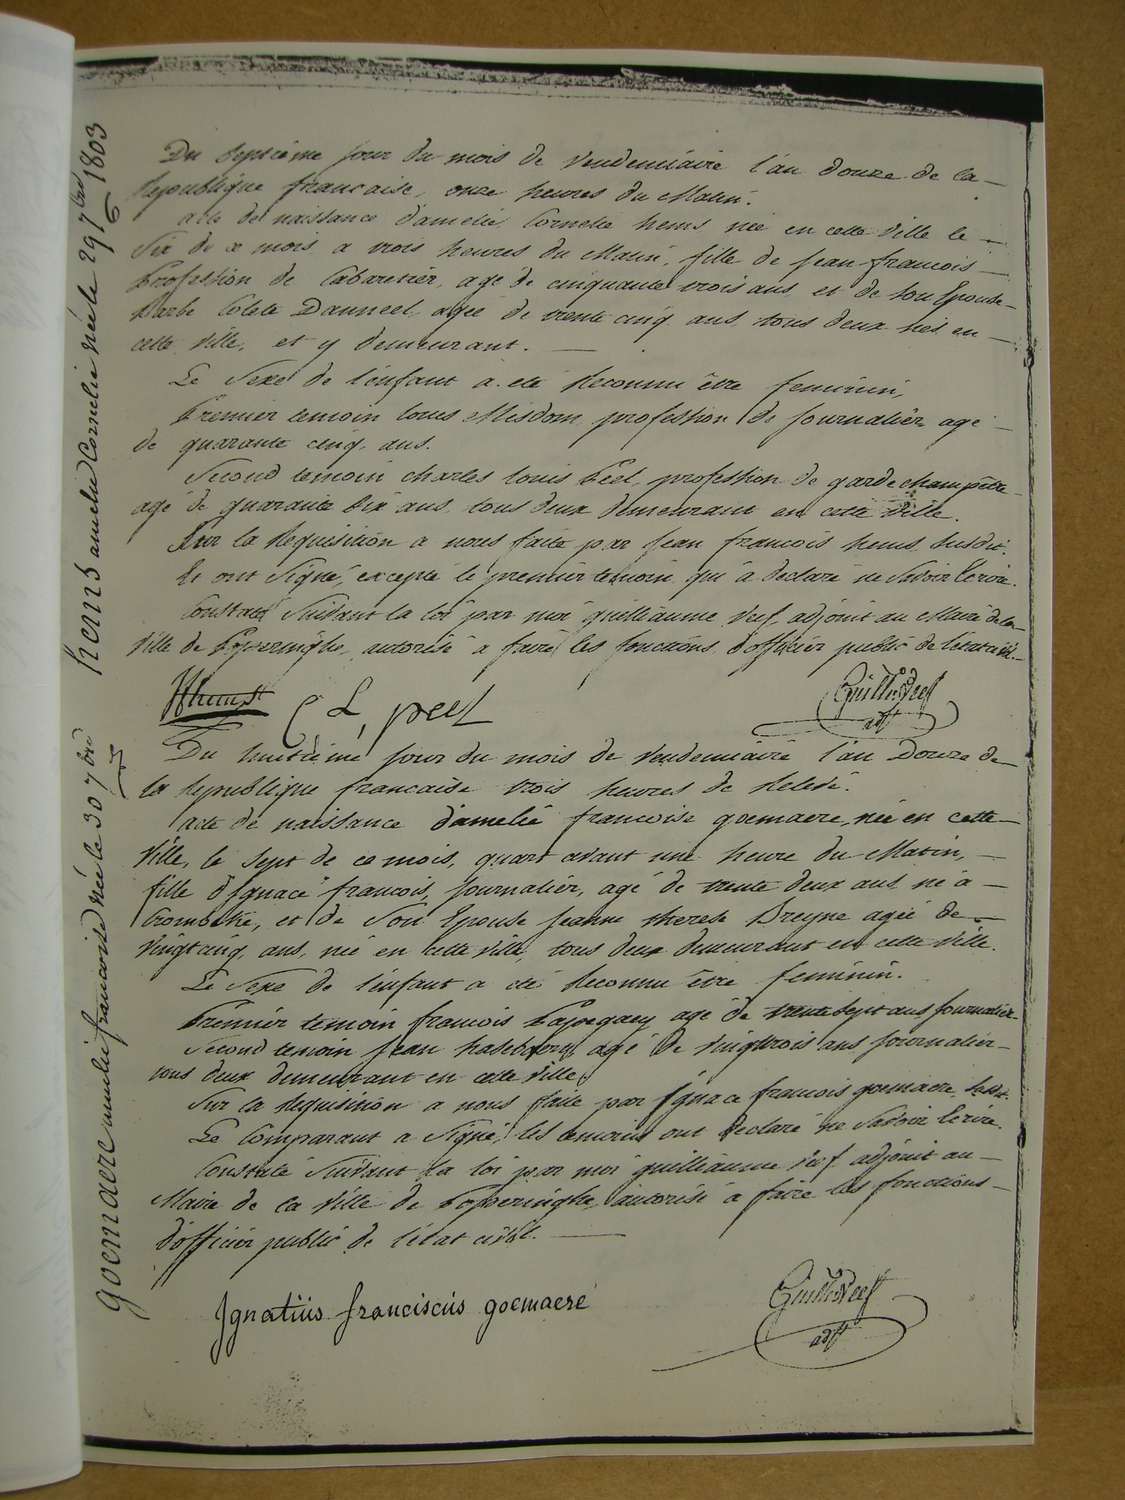 Du Septième jour du mois de Vendemiaire l'an douze de la
Republique francaise, onze heures du Matin.
acte de naissance d'amelie Cornelie hems née en cette Ville le
Six de ce mois a trois heures du Matin, fille de jean francois
Profession de Cabaretier, agé de cinquante trois ans, et de Son Epouse
Barbe Colete Danneel, agée de trente cinq ans, tous deux nés en
cette Ville, et y demeurant.
Le Sexe de l'enfant a été Reconnu être feminin,
Premier temoin louis Misdom, profession de journalier agé
de quarante cinq ans.
Second temoin charles louis Peel, profession de garde champêtre
agé de quarante Six ans, tous deux demeurant en cette Ville.
Sur la Requisition a nous faite par jean francois hems Susdit.
Et ont Signé, excepté le premier temoin qui a declaré ne Savoir Ecrire.
Constaté Suivant la loi par moi guilliaume Reef adjoint au Maire de la
Ville de Poperinghe, autorisé a faire les fonctions d'officier public de l'état civil.
C L, peel
adjt
Du huitième jour du mois de Vendemiaire l'an Douze de
la Republique francaise trois heures de Relevé.
acte de naissance d'amelie francoise goemaere, née en cette
Ville, le Sept de ce mois, quart avant une heure du Matin,
fille d'Ignace francois, journalier, agé de trente deux ans, né à
Crombeke, et de Son Epouse jeanne therese Dreyne agée de
Vingtcinq ans, née en cette Ville, tous deux demeurant en cette Ville.
Le Sexe de l'enfant a été Reconnu être feminin.
Premier temoin francois agé de trente Sept ans journalier
Second temoin jean agé de Vingttrois ans journalier
tous deux demeurant en cette Ville,
Sur la Requisition a nous faite par Ignace francois goemaere, Susdit.
Le Comparant a Signé, les temoins ont declaré ne Savoir Ecrire.
Constaté Suivant la loi par moi guilliaume Reef adjoint au
Maire de la Ville de Poperinghe, autorisé a faire les fonctions
d'officier public de l'état civil.
Ignatiüs franciscüs goemaere
adjt
hems amelie Cornelie née le 29 7bre 1803
6
goemaere amelie francoise née le 30 7bre
7